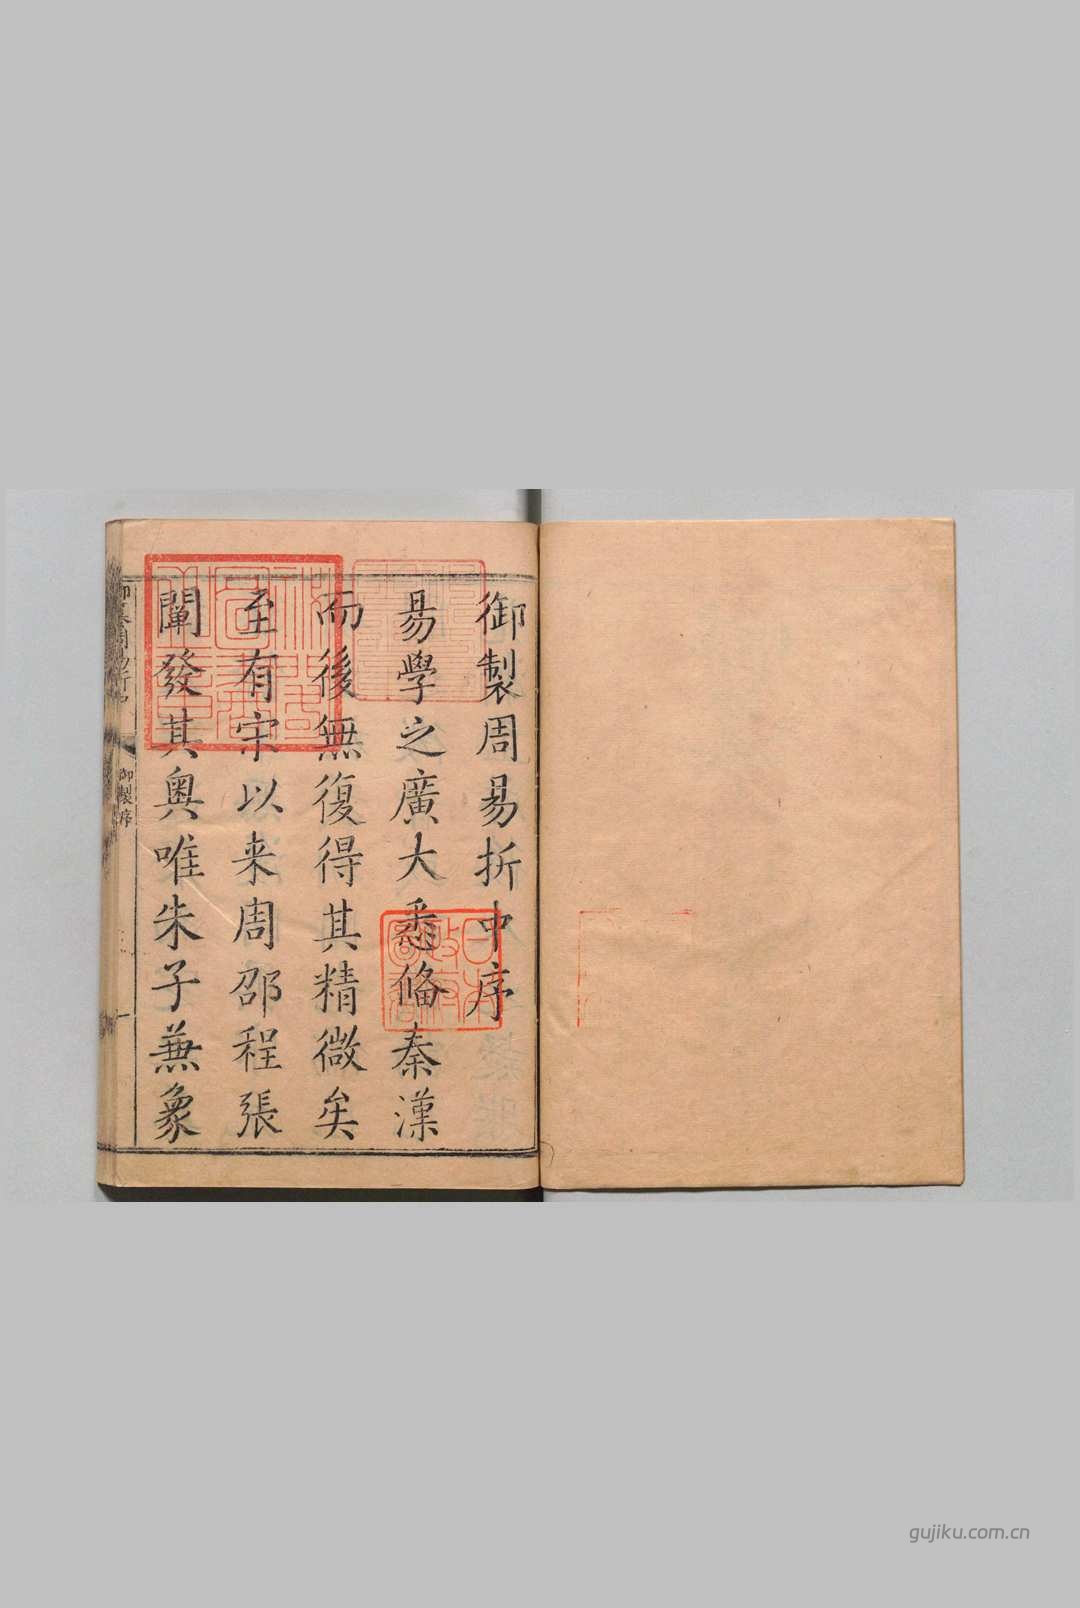 御製周易折中序
易學之廣大悉俻秦漢
而後無復得其精微矣
至有宋以来周邵程張
闡發其奥唯朱子兼象
御製序
一
日本政府圖書
gujiku.com.cn